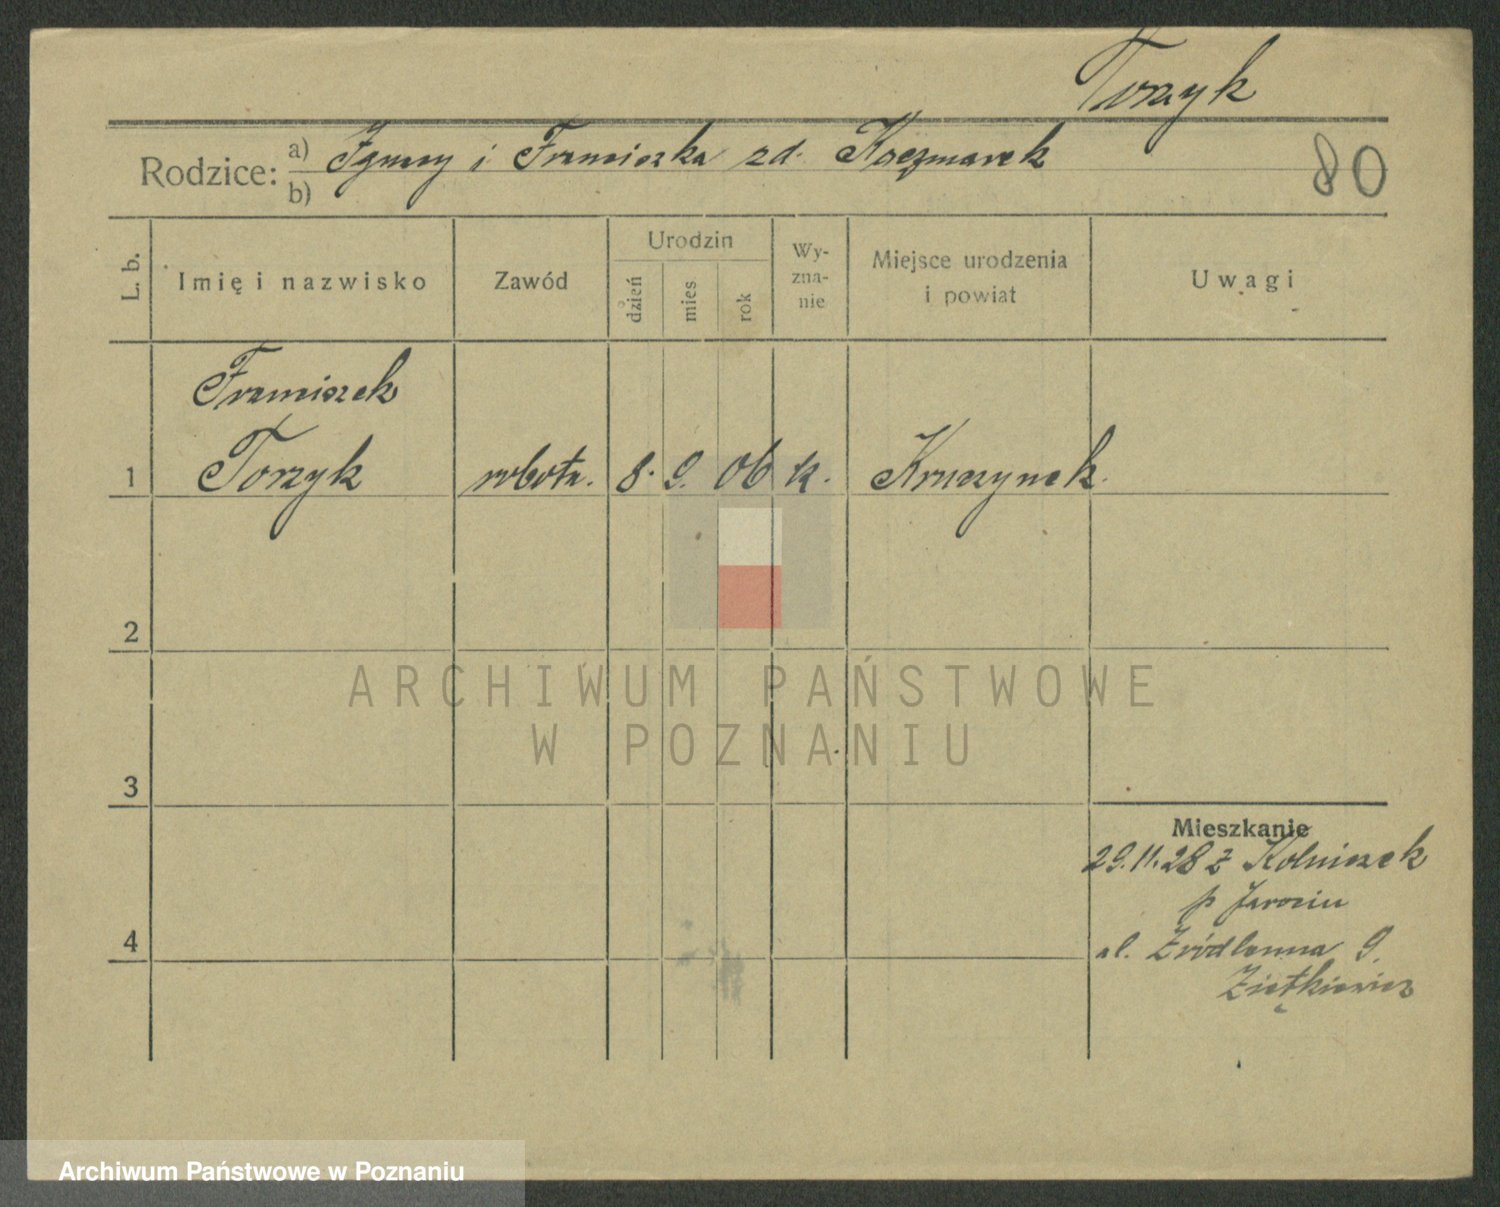 Torzyk
Rodzice: a) Ignacy i Franciszka zd. Kaczmarek
b)
80
L. b.
Imię i nazwisko
Zawód
Urodzin
dzień
mies
rok
Wy-
zna-
nie
Miejsce urodzenia
i powiat
Uwagi
Franciszek
1 Torzyk robotn. 8. 9. 06 k. Kruczynek.
2
ARCHIWUM PAŃSTWOWE
W POZNANIU
3
Mieszkanie
29.11.28 z Kolniczek
p Jarocin
4
ul. Źródlanna 9.
Ziętkiewicz
Archiwum Państwowe w Poznaniu